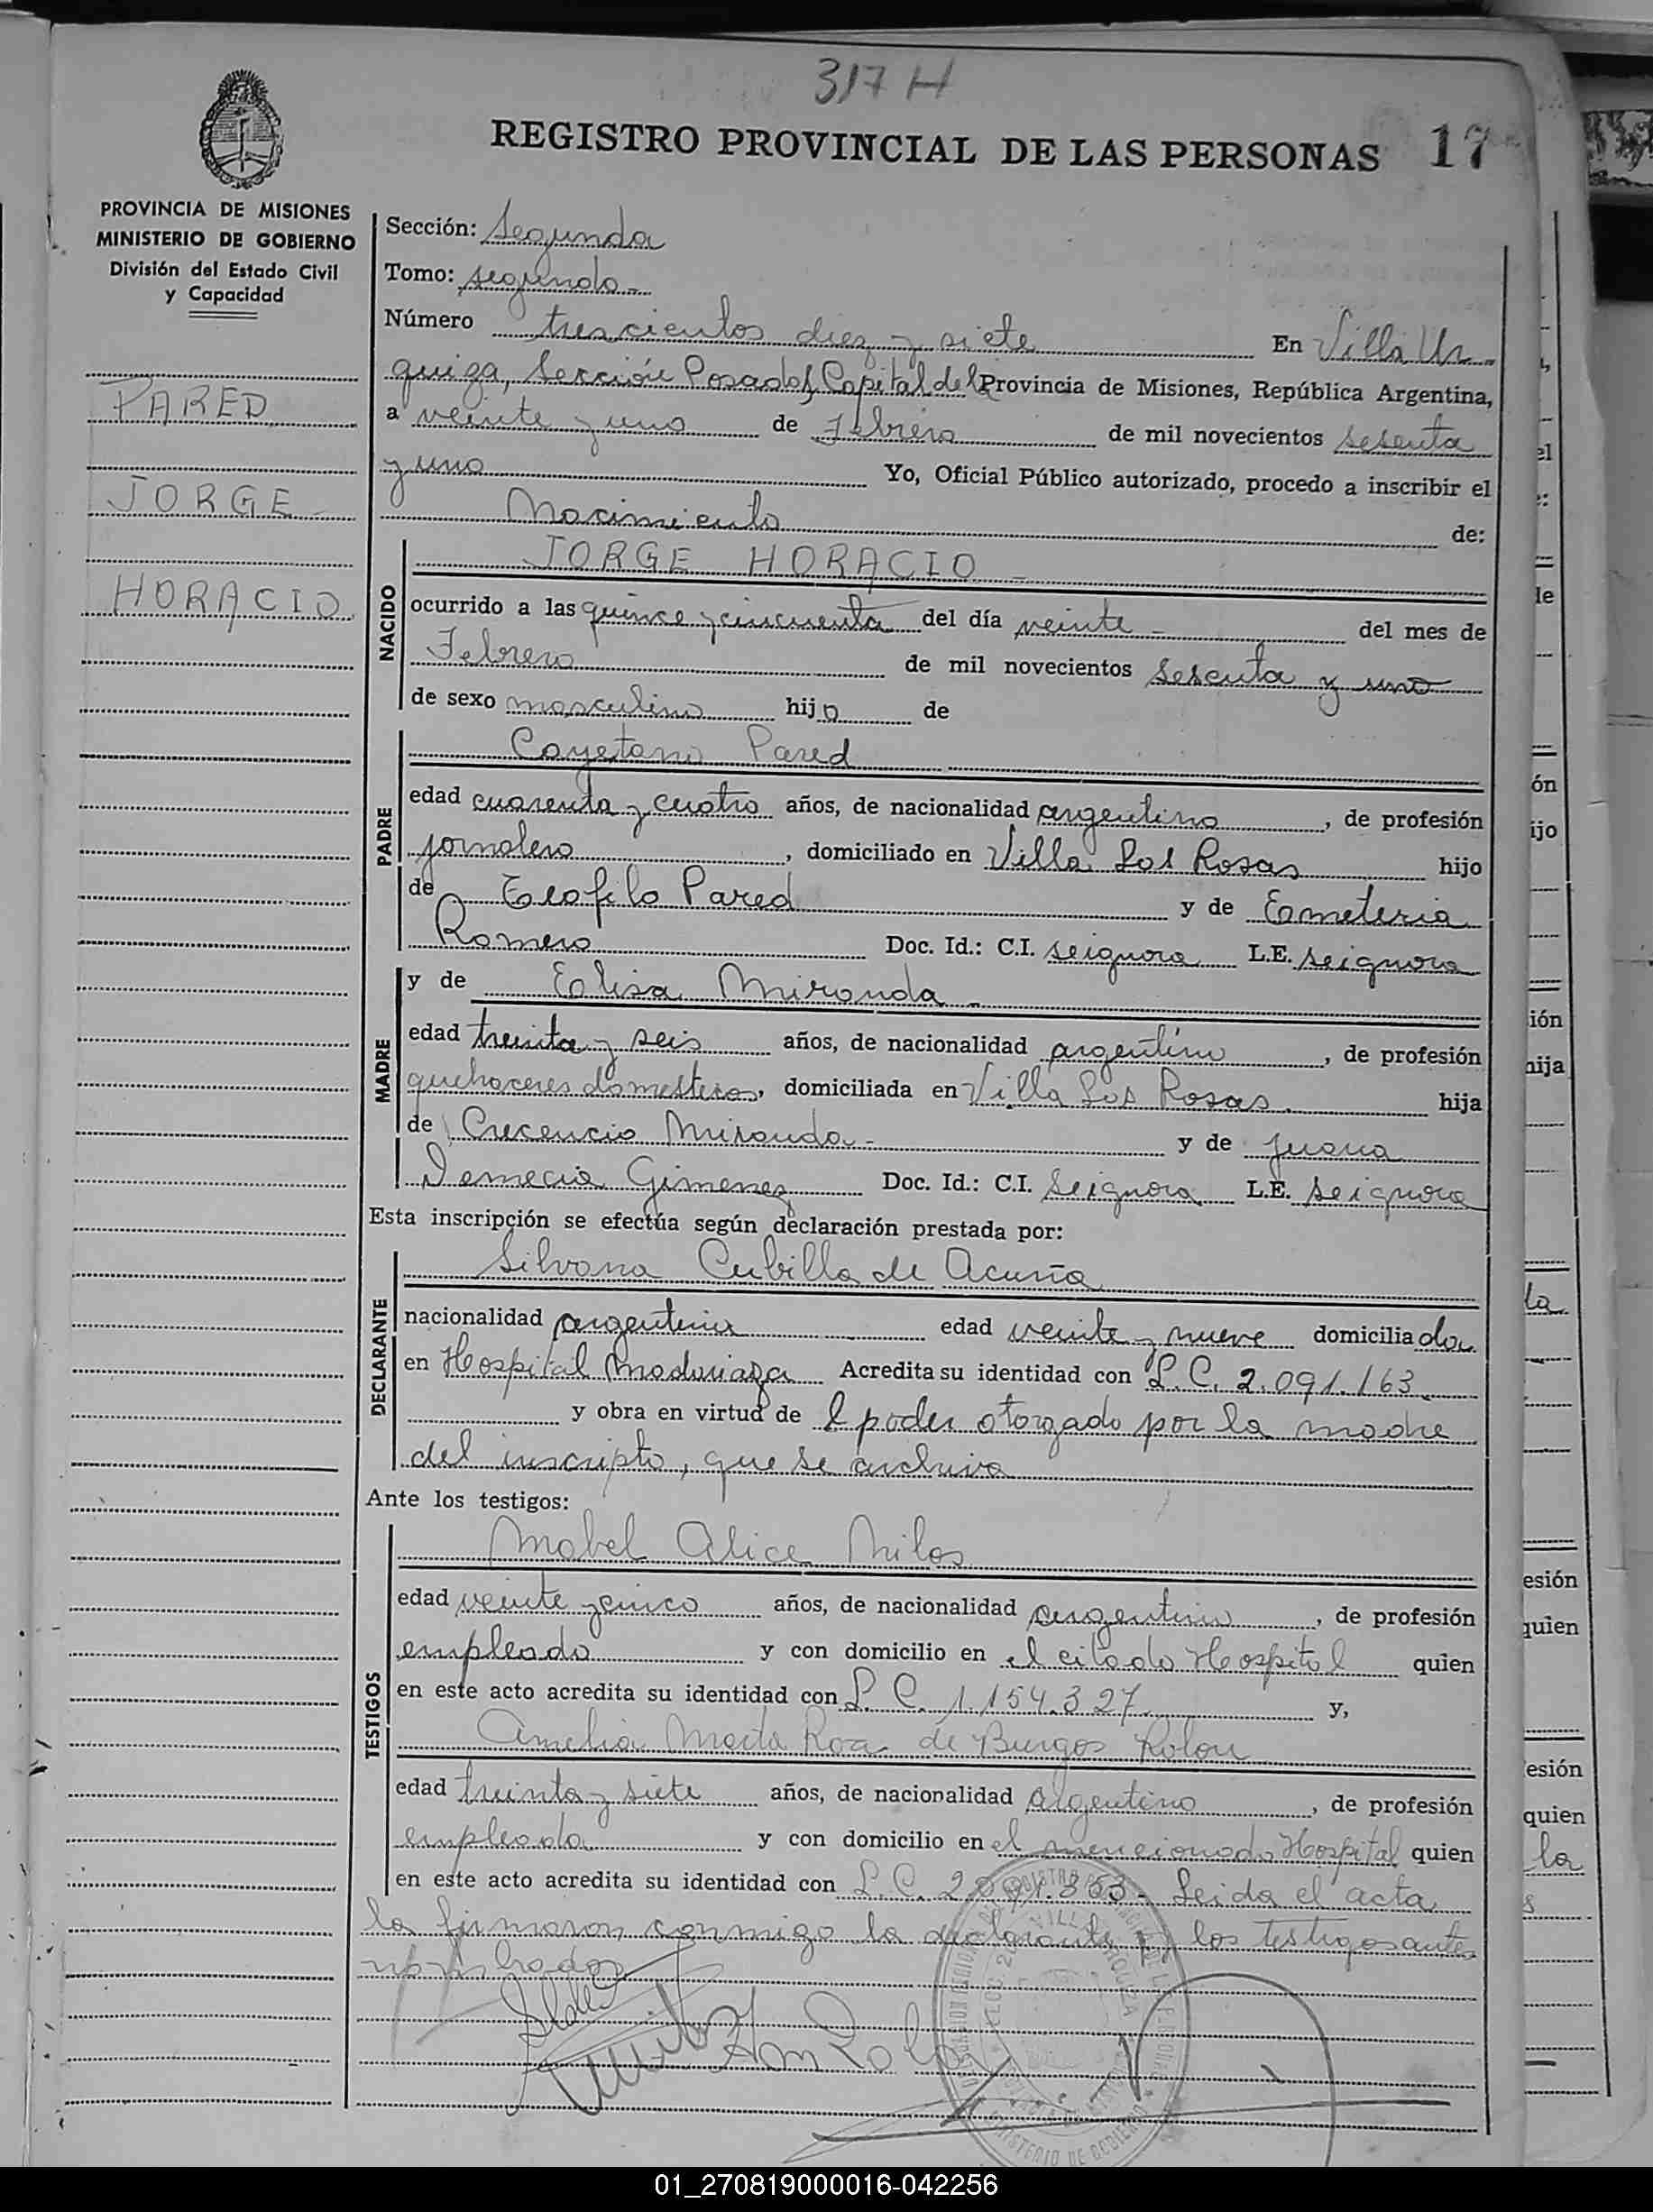 317 H
REGISTRO PROVINCIAL DE LAS PERSONAS 17
PROVINCIA DE MISIONES
MINISTERIO DE GOBIERNO
División del Estado Civil
y Capacidad
PARED
JORGE
HORACIO
Sección: Segunda
Tomo: segundo
Número trescientos diez y siete En Villa Ur
quiza, Sección Posadas Capital de la Provincia de Misiones, República Argentina,
a veinte y uno de Febrero de mil novecientos sesenta
y uno Yo, Oficial Público autorizado, procedo a inscribir el
Nacimiento de:
NACIDO
JORGE HORACIO
ocurrido a las quince y cincuenta del día veinte del mes de
Febrero de mil novecientos sesenta y uno
de sexo masculino hijo de
PADRE
Cayetano Pared
edad cuarenta y cuatro años, de nacionalidad argentino, de profesión
jornalero, domiciliado en Villa Las Rosas hijo
de Teofilo Pared y de
Romero Doc. Id.: C.I. se ignora L.E. se ignora
MADRE
y de Elisa Miranda
edad treinta y seis años, de nacionalidad argentina, de profesión
quehaceres domesticos, domiciliada en Villa Las Rosas hija
de Crecencio Miranda y de Juana
Demecia Gimenez Doc. Id.: C.I. Se ignora L.E. se ignora
Esta inscripción se efectúa según declaración prestada por:
DECLARANTE
Silvana Cubilla de Acuña
nacionalidad argentina edad veinte y nueve domiciliada
en Hospital Madariaga Acredita su identidad con L.C. 2.091.163
y obra en virtud de l poder otorgado por la madre
del inscripto, que se archiva
Ante los testigos:
TESTIGOS
Mabel Alice
edad veinte y cinco años, de nacionalidad argentina, de profesión
empleada y con domicilio en el citado Hospital quien
en este acto acredita su identidad con L.C. 1.154.327 y,
Amelia Marta Roa de Burgos Rolon
edad treinta y siete años, de nacionalidad argentina, de profesión
empleada y con domicilio en el mencionado Hospital quien
en este acto acredita su identidad con L.C. Leida el acta
la firmaron conmigo la declarante y los testigos ante
01_270819000016-042256